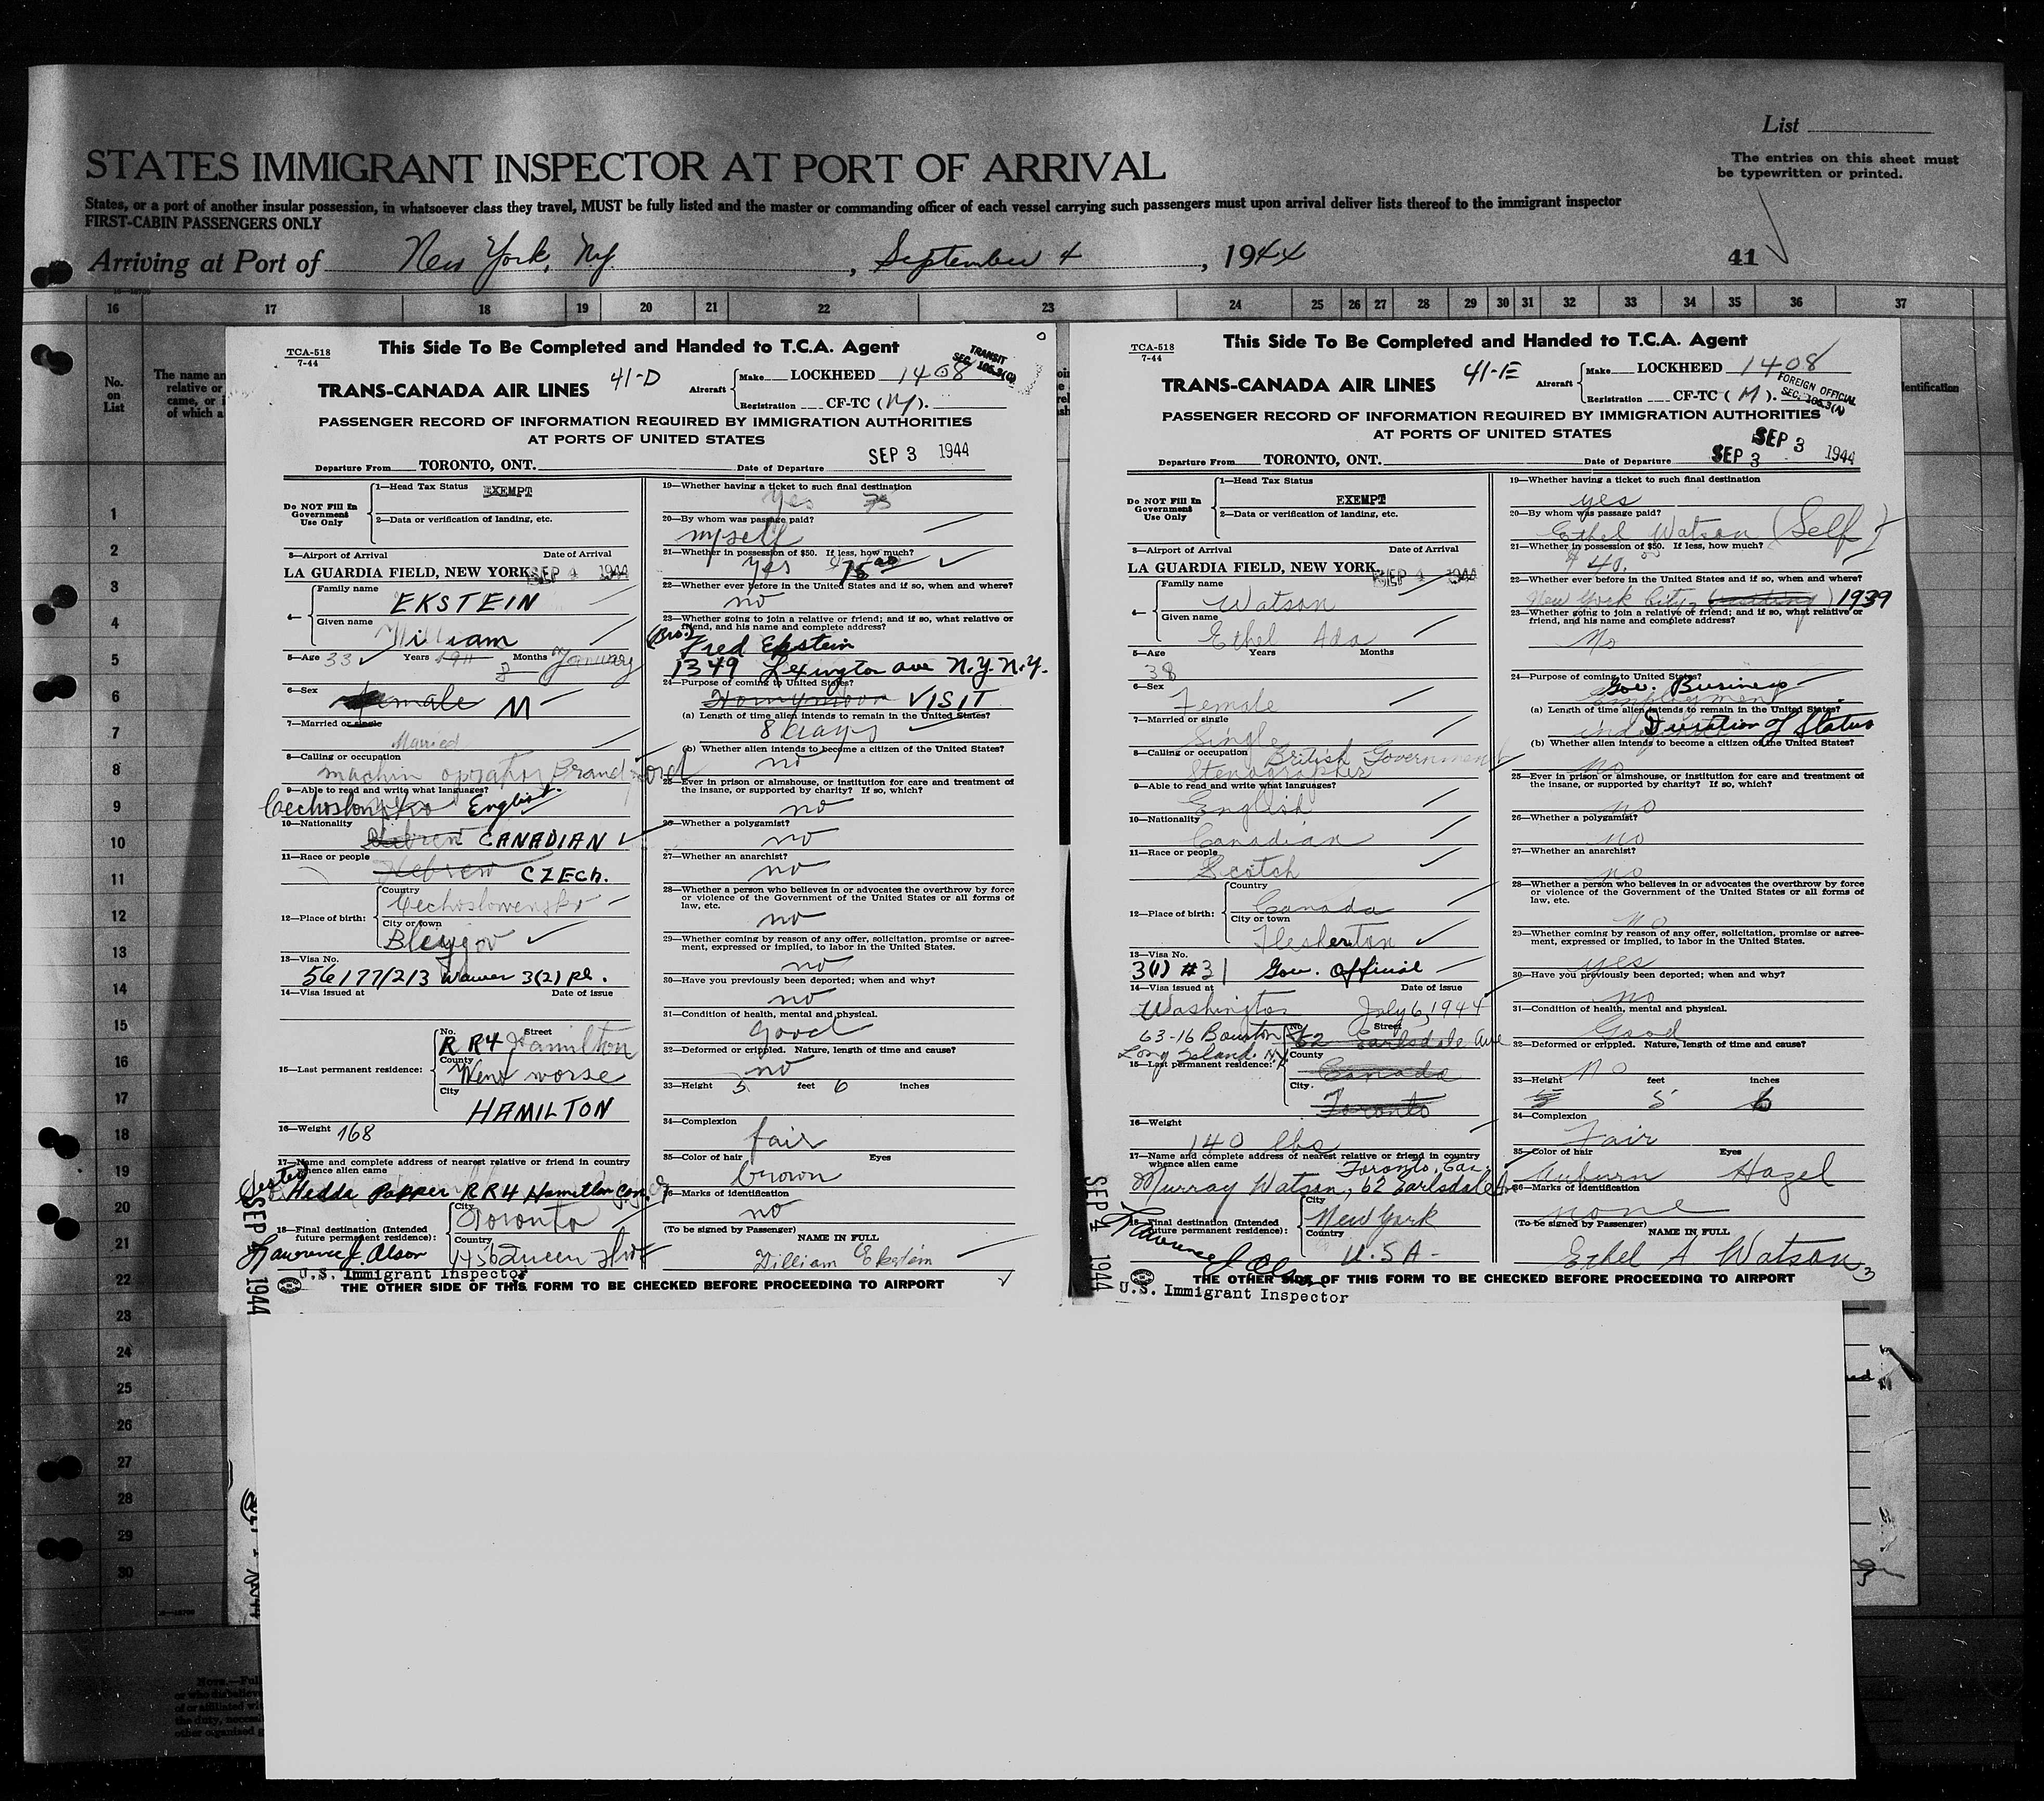 List
STATES IMMIGRANT INSPECTOR AT PORT OF ARRIVAL
The entries on this sheet must
be typewritten or printed.
States, or a port of another insular possession, in whatsoever class they travel, MUST be fully listed and the master or commanding officer of each vessel carrying such passengers must upon arrival deliver lists thereof to the immigrant inspector
FIRST-CABIN PASSENGERS ONLY
Arriving at Port of New York, Ny. , September 4 , 1944
41
16 17 18 19 20 21 22 23 24 25 26 27 28 29 30 31 32 33 34 35 36 37
No.
on
List
The name an
relative or
came, or i
of which a
entification
1
2
3
4
5
6
7
8
9
10
11
12
13
14
15
16
17
18
19
20
21
22
23
24
25
26
27
28
29
30
TCA-518
7-44
This Side To Be Completed and Handed to T.C.A. Agent
TRANSIT
SEC. 106.3(C)
TRANS-CANADA AIR LINES 41-D
Aircraft Make LOCKHEED 1408
Registration CF-TC (M).
PASSENGER RECORD OF INFORMATION REQUIRED BY IMMIGRATION AUTHORITIES
AT PORTS OF UNITED STATES
Departure From TORONTO, ONT. Date of Departure SEP 3 1944
Do NOT Fill In
Government
Use Only
1—Head Tax Status EXEMPT
2—Data or verification of landing, etc.
3—Airport of Arrival Date of Arrival
LA GUARDIA FIELD, NEW YORK. SEP 4 1944
4— Family name
EKSTEIN
Given name
William
5—Age 33 Years 1911 Months January
6—Sex
male M
7—Married or single
Married
8—Calling or occupation
machin oprator Brandford
9—Able to read and write what languages?
English.
10—Nationality
CANADIAN
11—Race or people
Hebrew CZECH.
12—Place of birth: Country
City or town
13—Visa No.
56177/213 Waiver 3(2) Pl.
14—Visa issued at Date of issue
15—Last permanent residence: No. Street
R R4 Hamilton
County
City
HAMILTON
16—Weight 168
17—Name and complete address of nearest relative or friend in country
whence alien came
Sister
Hedda Popper RR4 Hamilton Can.
18—Final destination (Intended
future permanent residence): City
Toronto
Country
Lawrence J. Olson
U.S. Immigrant Inspector
SEP 4 1944
19—Whether having a ticket to such final destination
Yes
20—By whom was passage paid?
myself
21—Whether in possession of $50. If less, how much?
yes
22—Whether ever before in the United States and if so, when and where?
no
23—Whether going to join a relative or friend; and if so, what relative or
friend, and his name and complete address?
(Bro.)
Fred Ekstein
1349 Lexington ave N.Y. N.Y.
24—Purpose of coming to United States?
Honnymoon VISIT
(a) Length of time alien intends to remain in the United States?
8 days
(b) Whether alien intends to become a citizen of the United States?
no
25—Ever in prison or almshouse, or institution for care and treatment of
the insane, or supported by charity? If so, which?
no
26—Whether a polygamist?
no
27—Whether an anarchist?
no
28—Whether a person who believes in or advocates the overthrow by force
or violence of the Government of the United States or all forms of
law, etc.
no
29—Whether coming by reason of any offer, solicitation, promise or agree-
ment, expressed or implied, to labor in the United States.
no
30—Have you previously been deported; when and why?
no
31—Condition of health, mental and physical.
good
32—Deformed or crippled. Nature, length of time and cause?
no
33—Height 5 feet 6 inches
34—Complexion
fair
35—Color of hair Eyes
brown
36—Marks of identification
no
(To be signed by Passenger) NAME IN FULL
William Ekstein
THE OTHER SIDE OF THIS FORM TO BE CHECKED BEFORE PROCEEDING TO AIRPORT
TCA-518
7-44
This Side To Be Completed and Handed to T.C.A. Agent
TRANS-CANADA AIR LINES 41-E
Aircraft Make LOCKHEED 1408
Registration CF-TC (M).
FOREIGN OFFICIAL
SEC. 106.3(A)
PASSENGER RECORD OF INFORMATION REQUIRED BY IMMIGRATION AUTHORITIES
AT PORTS OF UNITED STATES
SEP 3
Departure From TORONTO, ONT. Date of Departure SEP 3 1944
Do NOT Fill In
Government
Use Only
1—Head Tax Status
EXEMPT
2—Data or verification of landing, etc.
3—Airport of Arrival Date of Arrival
LA GUARDIA FIELD, NEW YORK. SEP 4 1944
4— Family name
Watson
Given name
Ethel Ada
5—Age Years Months
38
6—Sex
Female
7—Married or single
Single
8—Calling or occupation British Government
Stenographer
9—Able to read and write what languages?
English
10—Nationality
Canadian
11—Race or people
Scotch
12—Place of birth: Country
Canada
City or town
Flesherton
13—Visa No.
3(1) #31 Gov. Official
14—Visa issued at Date of issue
Washington July 6, 1944
63-16 Bourton
Long Island. N.Y.
15—Last permanent residence: No. Street
62 Earlsdale Ave
County
Canada
City.
Toronto
16—Weight
140 lbs
17—Name and complete address of nearest relative or friend in country
whence alien came
Toronto, Can.
Murray Watson, 62 Earlsdale Ave
18—Final destination (Intended
future permanent residence): City
New York
Country
U.S.A.
Lawrence J. Olson
U.S. Immigrant Inspector
SEP 4 1944
19—Whether having a ticket to such final destination
yes
20—By whom was passage paid?
Ethel Watson (Self)
21—Whether in possession of $50. If less, how much?
$40.
22—Whether ever before in the United States and if so, when and where?
New York City, 1939
23—Whether going to join a relative or friend; and if so, what relative or
friend, and his name and complete address?
No
24—Purpose of coming to United States?
Gov. Business
Employment
(a) Length of time alien intends to remain in the United States?
Duration of Status
(b) Whether alien intends to become a citizen of the United States?
No
25—Ever in prison or almshouse, or institution for care and treatment of
the insane, or supported by charity? If so, which?
no
26—Whether a polygamist?
no
27—Whether an anarchist?
no
28—Whether a person who believes in or advocates the overthrow by force
or violence of the Government of the United States or all forms of
law, etc.
no
29—Whether coming by reason of any offer, solicitation, promise or agree-
ment, expressed or implied, to labor in the United States.
yes
30—Have you previously been deported; when and why?
no
31—Condition of health, mental and physical.
Good
32—Deformed or crippled. Nature, length of time and cause?
no
33—Height feet inches
5 6
34—Complexion
Fair
35—Color of hair Eyes
Auburn Hazel
36—Marks of identification
none
(To be signed by Passenger) NAME IN FULL
Ethel A Watson
THE OTHER SIDE OF THIS FORM TO BE CHECKED BEFORE PROCEEDING TO AIRPORT